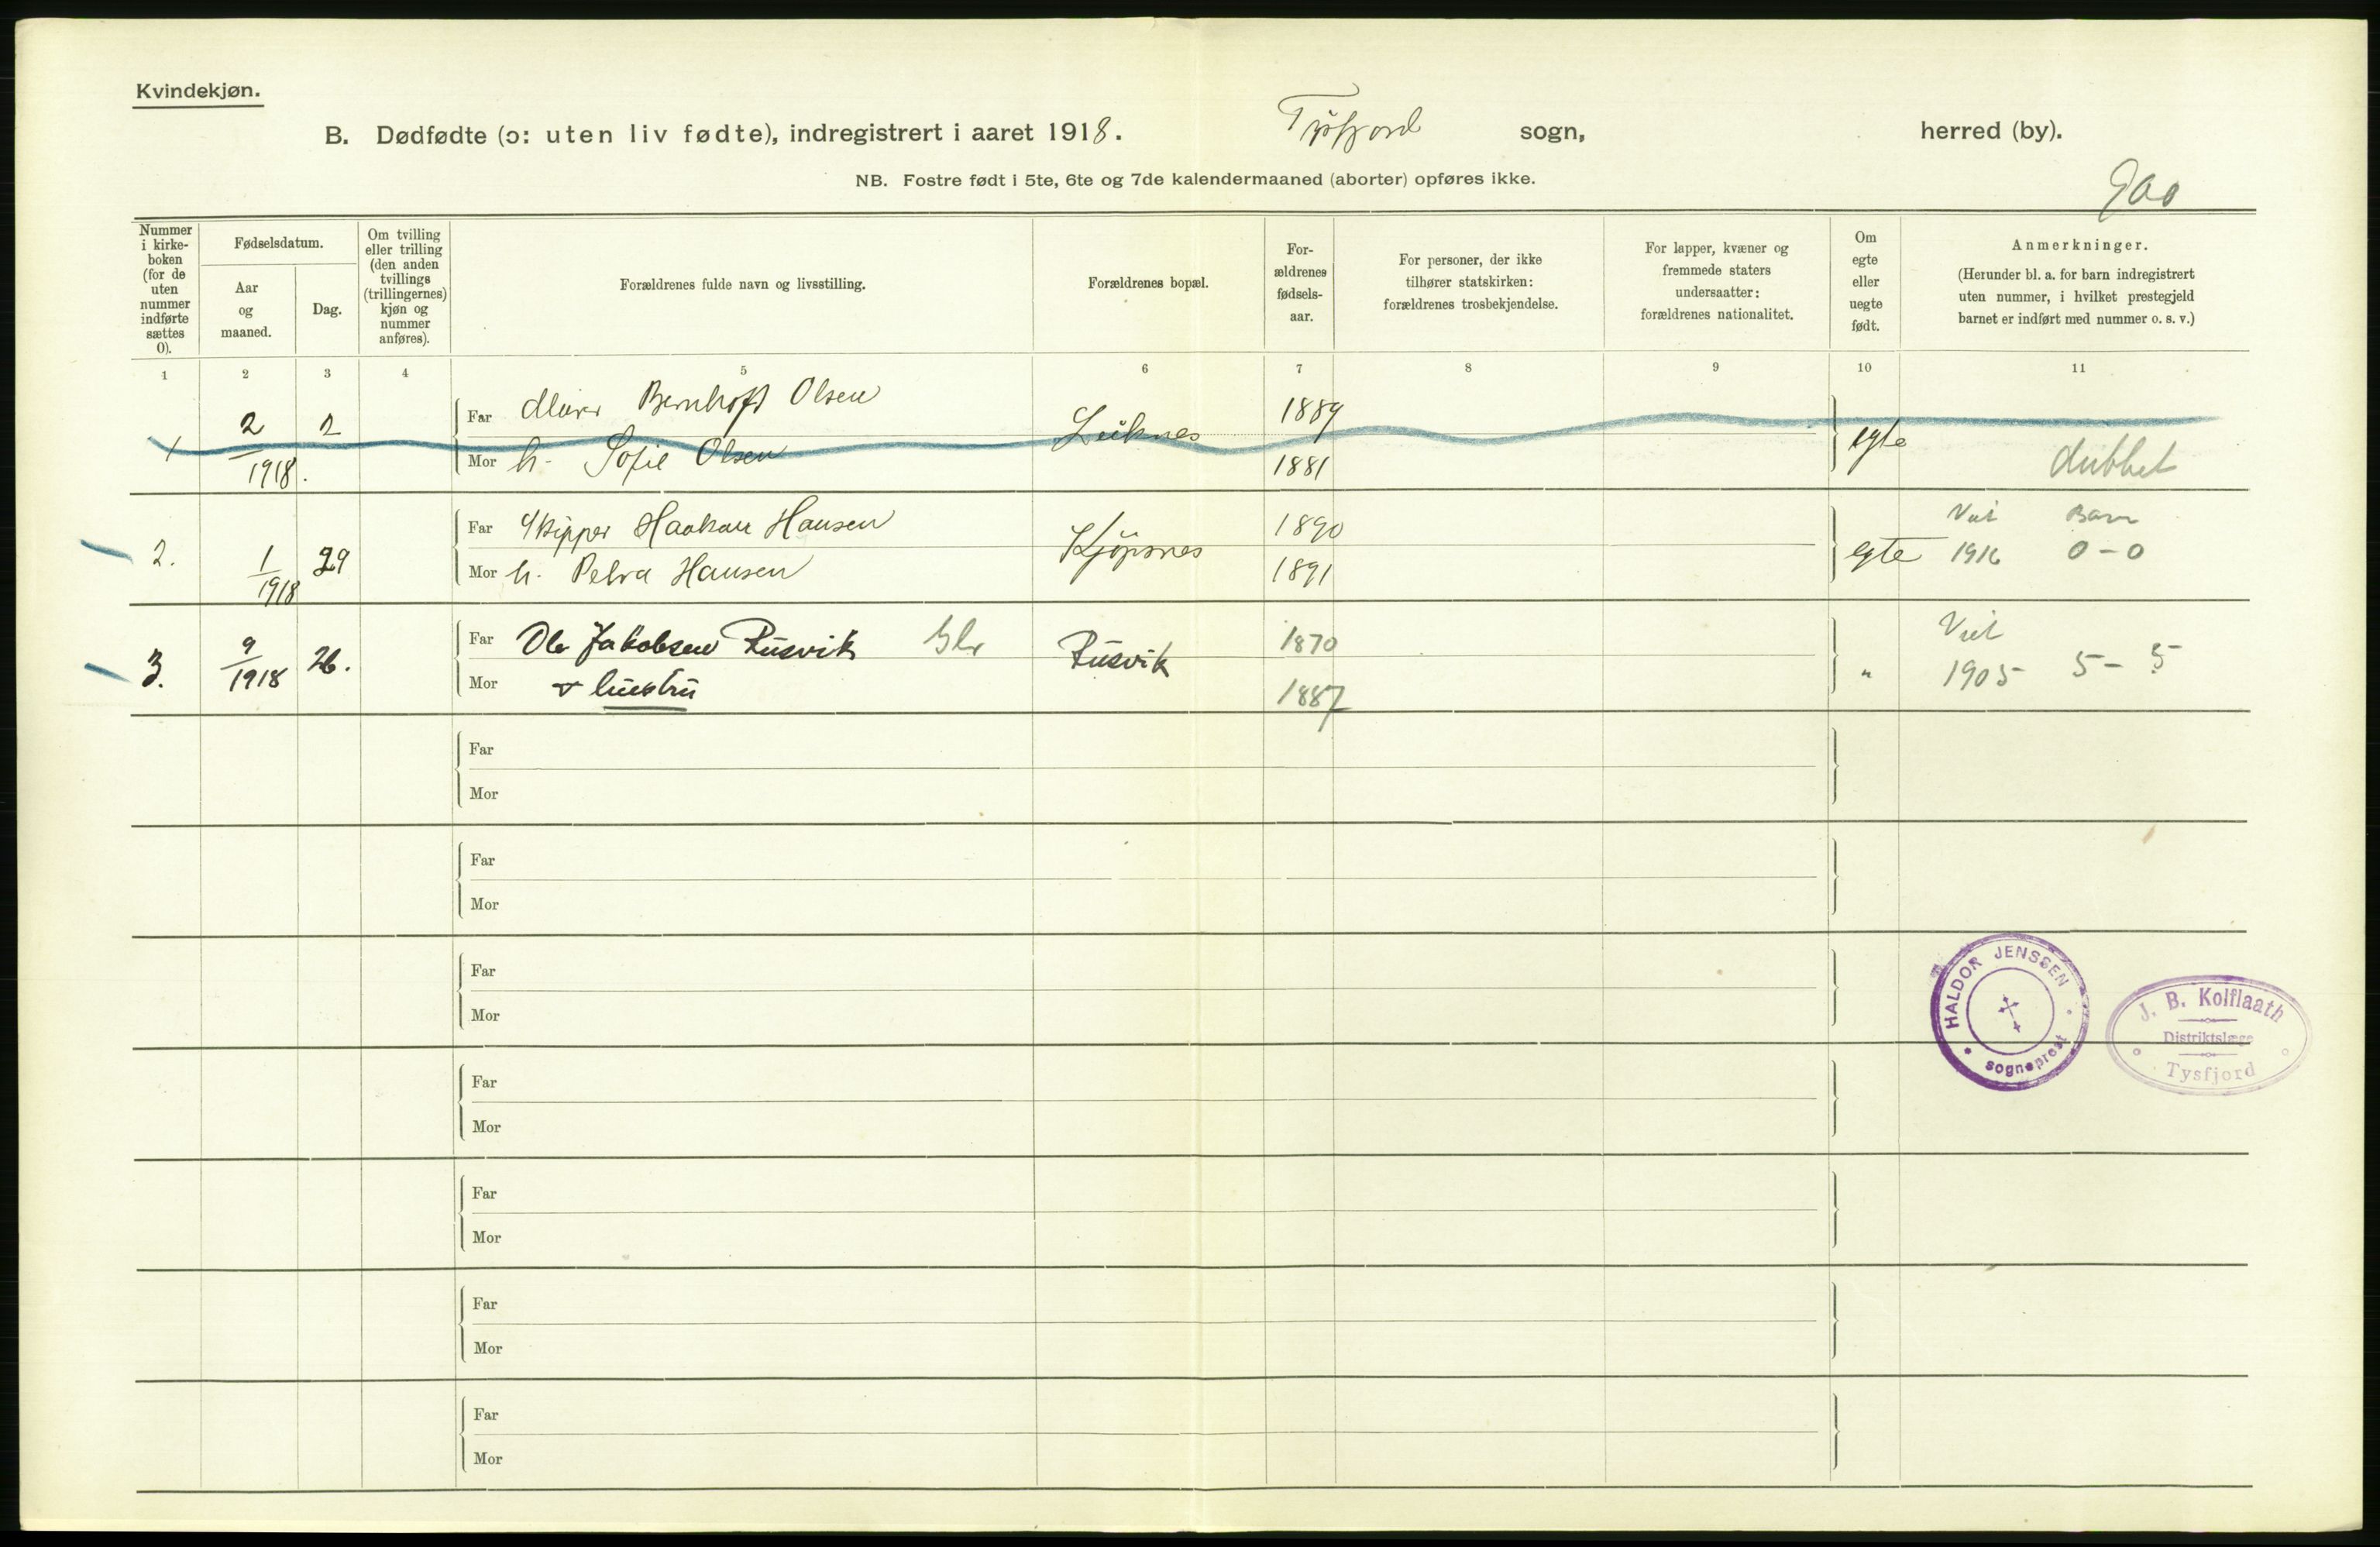 Kvindekjøn.
B. Dødfødte (ɔ: uten liv fødte), indregistrert i aaret 1918. Tysfjord sogn, herred (by).
NB. Fostre født i 5te, 6te og 7de kalendermaaned (aborter) opføres ikke.
Nummer i kirke-boken (for de uten nummer indførte sættes 0).
Fødselsdatum.
Aar og maaned.
Dag.
Om tvilling eller trilling (den anden tvillings (trillingernes) kjøn og nummer anføres).
Forældrenes fulde navn og livsstilling.
Forældrenes bopæl.
For-ældrenes fødsels-aar.
For personer, der ikke tilhører statskirken: forældrenes trosbekjendelse.
For lapper, kvæner og fremmede staters undersaatter: forældrenes nationalitet.
Om egte eller uegte født.
Anmerkninger.
(Herunder bl. a. for barn indregistrert uten nummer, i hvilket prestegjeld barnet er indført med nummer o. s. v.)
1 2 3 4 5 6 7 8 9 10 11
1 2/1918. 2 Far Murer Bernhoft Olsen Leiknes 1889 egte dubbet
Mor h. Sofie Olsen 1881
2. 1/1918 29 Far Skipper Haakon Hansen Kjöpsnes 1890 egte Viet 1916 Barn 0-0
Mor h. Petra Hansen 1891
3. 9/1918 26. Far Ole Jakobsen Rusvik Rusvik 1870 " Viet 1905 5-5
Mor + hustru 1887
Far
Mor
Far
Mor
Far
Mor
Far
Mor
Far
Mor
Far
Mor
Far
Mor
HALDOR JENSSEN
sogneprest
J. B. Kolflaath
Distriktslæge
Tysfjord